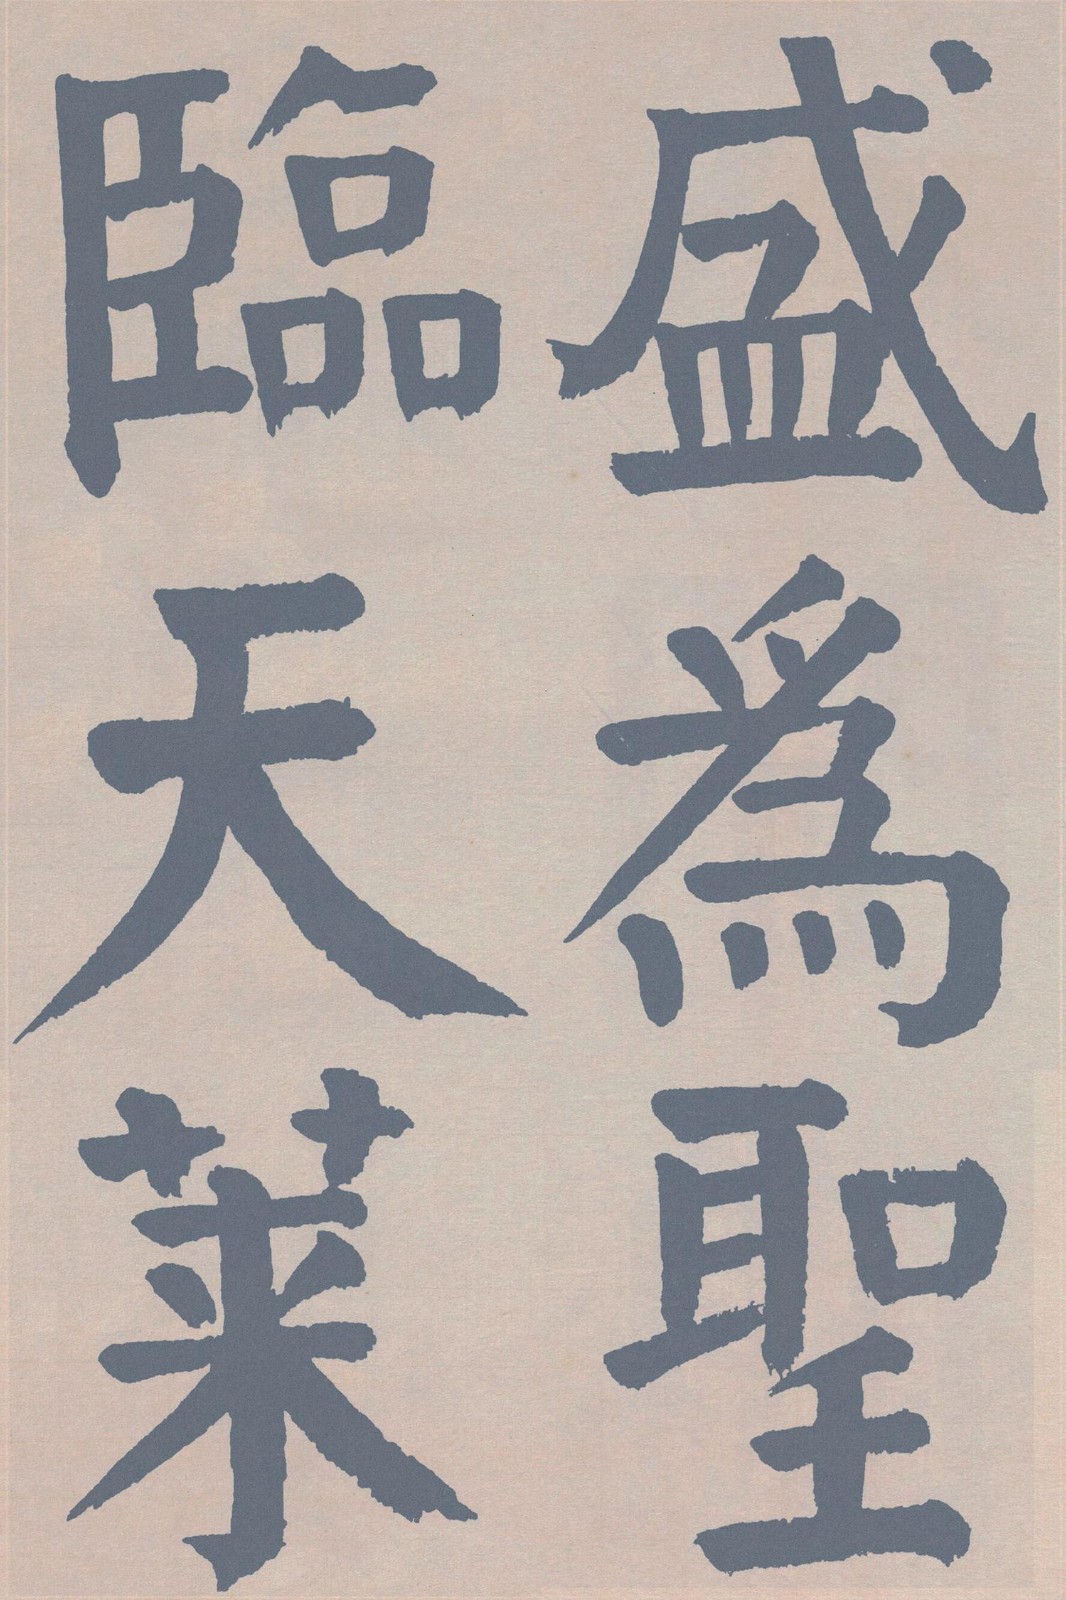 盛爲聖
臨天萊